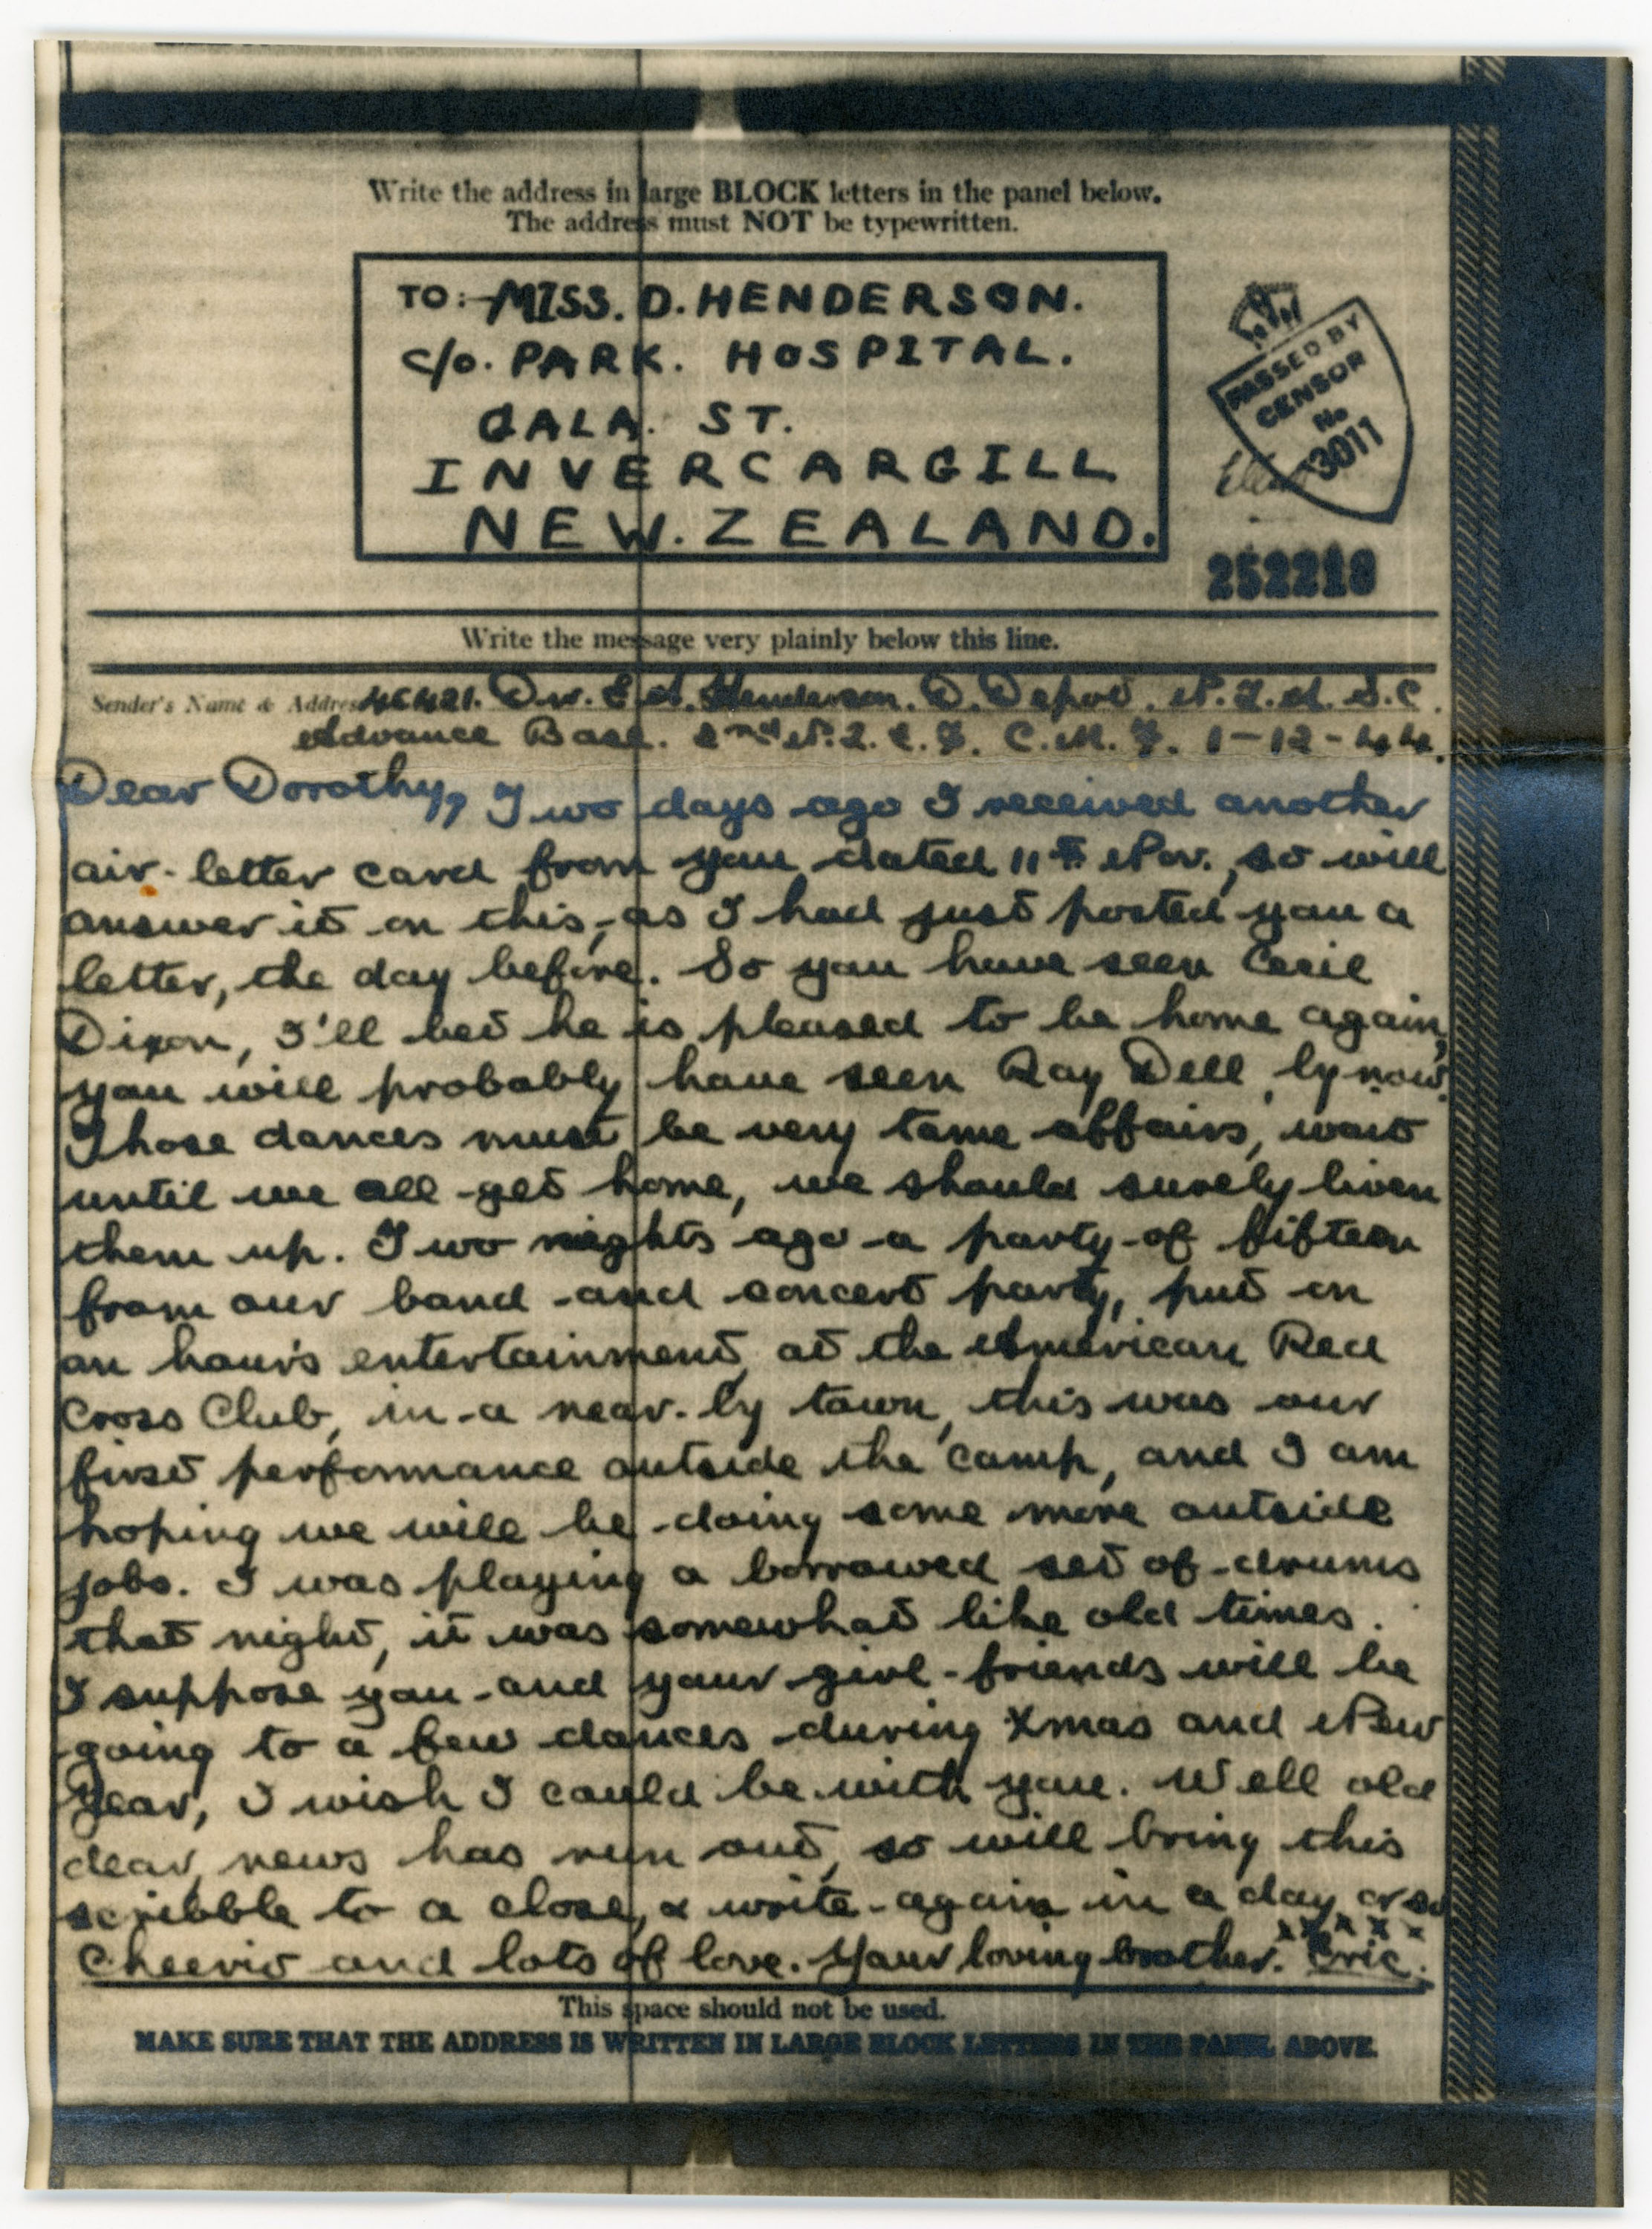 Write the address in large BLOCK letters in the panel below.
The address must NOT be typewritten.
TO:- MISS. D. HENDERSON.
c/o. PARK. HOSPITAL.
GALA. ST.
INVERCARGILL
NEW. ZEALAND.
PASSED BY
CENSOR
No
3011
252210
Write the message very plainly below this line.
Sender's Name & Address 46421. Dvr. E. A. Henderson. D. Depot. N.Z.A.S.C.
Advance Base. 2nd N.Z.E.F. C.M.F. 1-12-44.
Dear Dorothy, Two days ago I received another
air-letter card from you dated 11th Nov., so will
answer it on this, as I had just posted you a
letter, the day before. So you have seen Cecil
Dixon, I'll bet he is pleased to be home again,
you will probably have seen Ray Dell, by now.
Those dances must be very tame affairs, wait
until we all get home, we should surely liven
them up. Two nights ago a party of fifteen
from our band and concert party, put on
an hour's entertainment, at the American Red
Cross Club, in a near-by town, this was our
first performance outside the camp, and I am
hoping we will be doing some more outside
jobs. I was playing a borrowed set of drums
that night, it was somewhat like old times.
I suppose you and your girl-friends will be
going to a few dances during Xmas and New
Year, I wish I could be with you. Well old
dear, news has run out, so will bring this
scribble to a close, & write again in a day or so
Cheerio and lots of love. Your loving brother. Eric.
x x x x x
This space should not be used.
MAKE SURE THAT THE ADDRESS IS WRITTEN IN LARGE BLOCK LETTERS IN THE PANEL ABOVE.